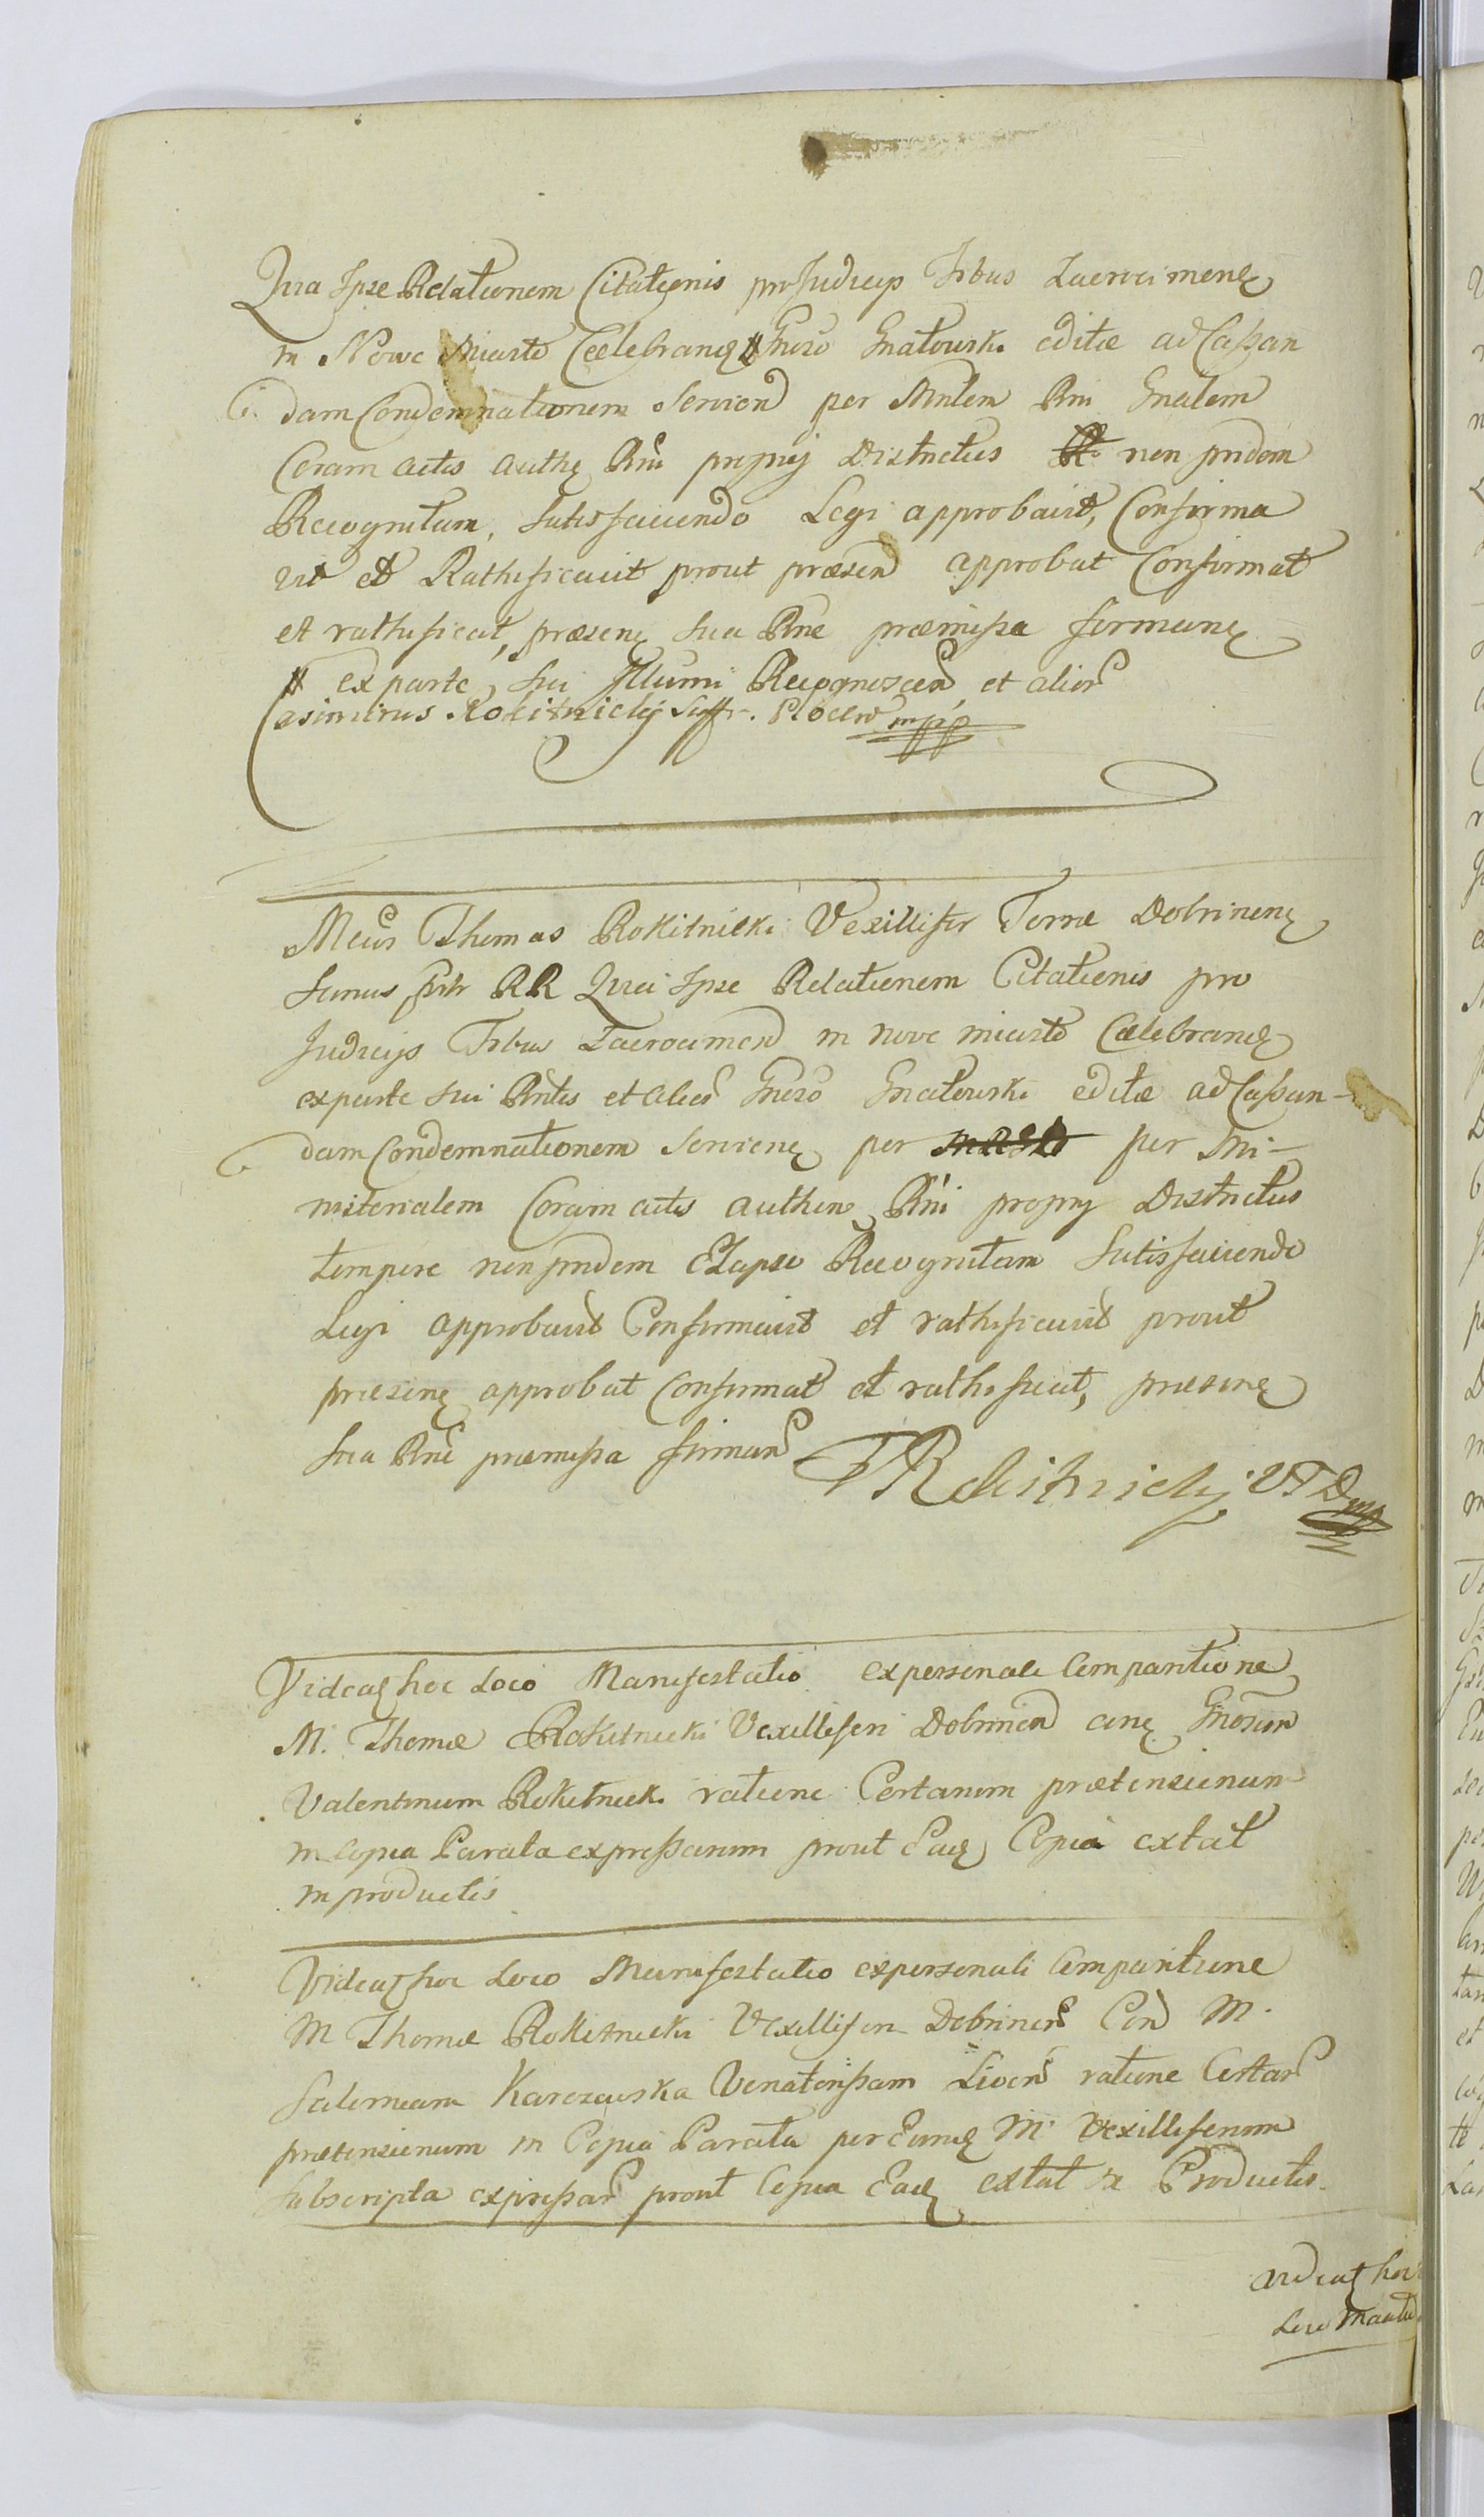 Quia Ipse Relationem Citationis pro Judicijs Tribus Zacrocimens
in Nowe Miasto Celebrand # Gnoso Gnatowski editæ ad Cassan
dam Condemnationem Servien per Mntem Rni Gnalem
Coram actis authen Rni proprij Districtus non pridem
Recognitam, Satisfaciendo Legi approbavit, Confirma
vit et Rathificavit prout præsen approbat Confirmat
et rathificat, præsens sua Rne præmissa firmans
# ex parte, sui Illumi Recognoscen et alior
Casimirus Rokitnickij Suffr. Plocen mpp
Mcus Thomas Rokitnicki Vexillifer Terræ Dobrinens
Sanus RR Quia Ipse Relationem Citationis pro
Judicijs Tribus Zacrocimen in nove miasto Cælebrand
ex parte sui Rntis et alior Gnoso Gnatowski editæ ad Cassan-
dam Condemnationem Serviens per per Mi-
nisterialem Coram actis authen Rni proprij Districtus
tempore non pridem Elapso Recognitam Satisfaciendo
Legi approbavit Confirmavit et rathificavit prout
præsens approbat Confirmat et rathificat, præsens
sua Rne præmissa firman
TRokitnicky VTD mpp
Videat hoc Loco Manifestatio ex personali Comparitione
M. Thomæ Rokitnicki Vexilliferi Dobrinen Gnosum
Valentinum Rokitnicki ratione Certarum prætensionum
in Copia Parata expressarum prout Ead Copia extat
in productis
Videat hoc Loco Manifestatio ex personali Comparitione
M Thomæ Rokitnicki Vexilliferi Dobrinen Con M.
Salomeam Karczewska Venatorissam Liven ratione Certar
prætensionum in Copia Parata per Eumd M. Vexilliferum
Subscripta expressar prout Copia Ead extat in Productis.
Videat hoc
Loco